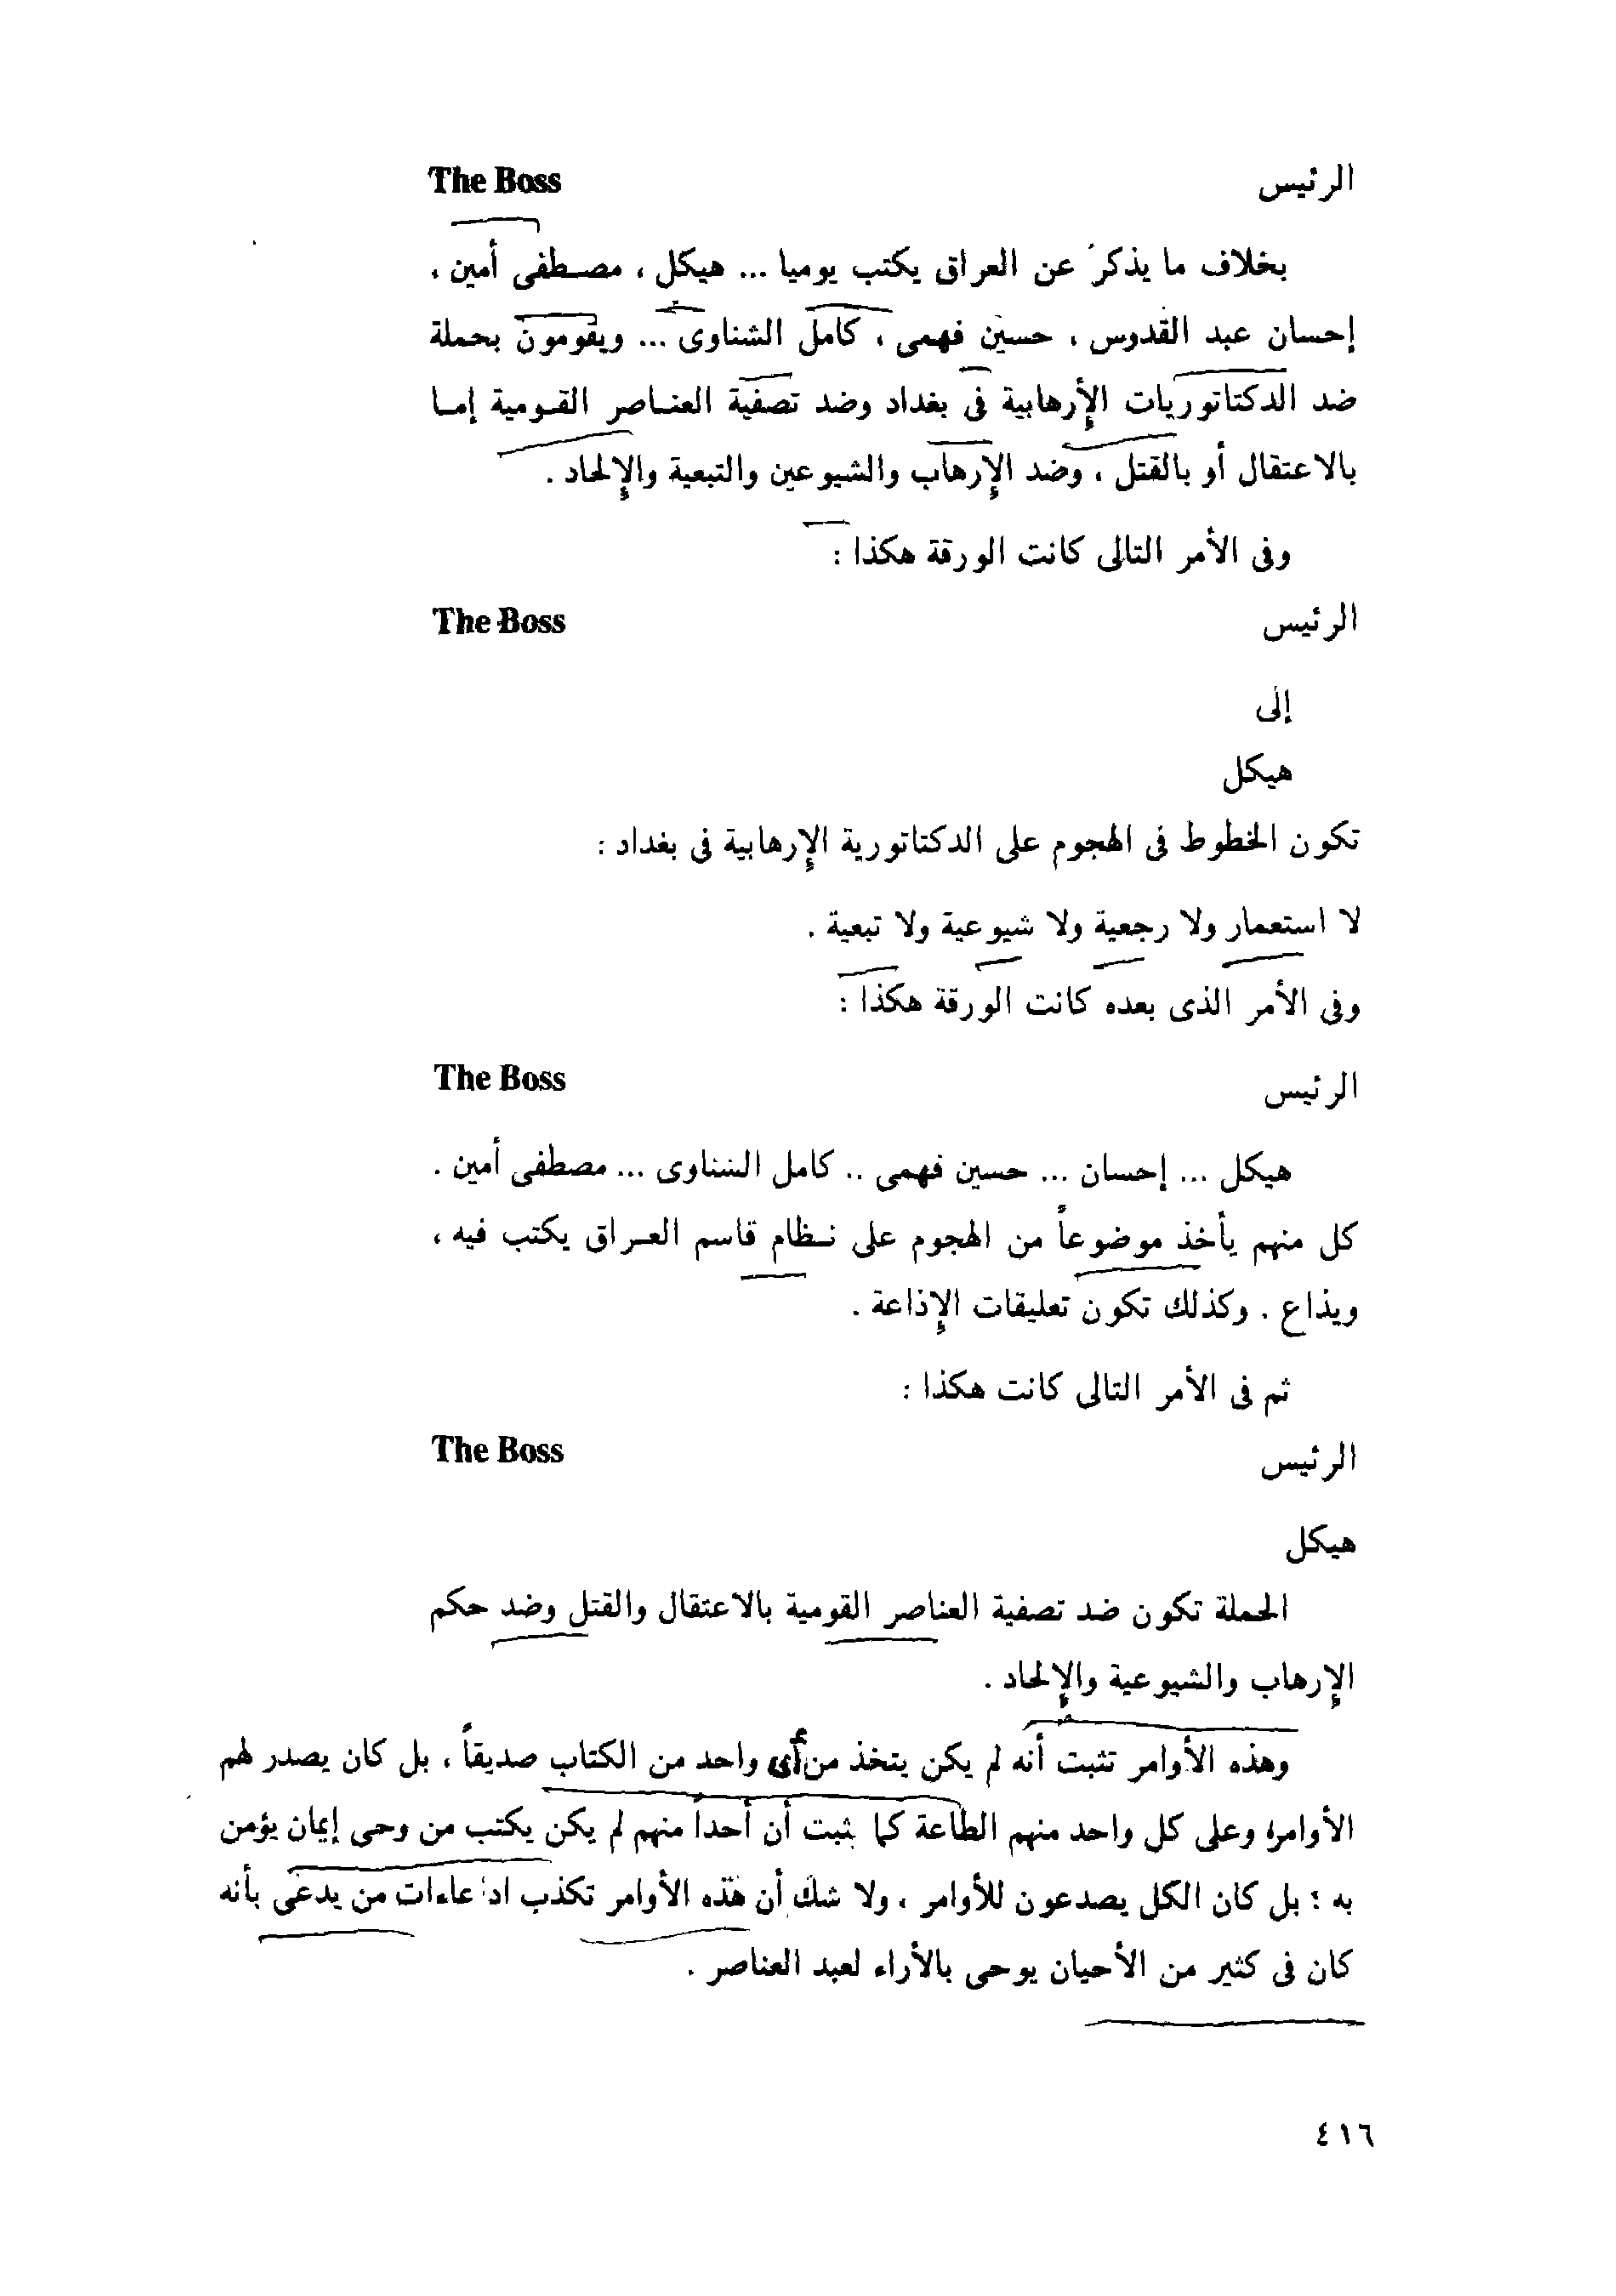 الرئيس The Boss
بخلاف ما يذكر عن العراق يكتب يوميا ... هيكل ، مصطفى أمين ،
إحسان عبد القدوس ، حسين فهمى ، كامل الشناوى ... ويقومون بحملة
ضد الدكتاتوريات الإرهابية فى بغداد وضد تصفية العناصر القومية إما
بالاعتقال أو بالقتل ، وضد الإرهاب والشيوعين والتبعية والإلحاد .
وفى الأمر التالى كانت الورقة هكذا :
الرئيس The Boss
إلى
هيكل
تكون الخطوط فى الهجوم على الدكتاتورية الإرهابية فى بغداد :
لا استعمار ولا رجعية ولا شيوعية ولا تبعية .
وفى الأمر الذى بعده كانت الورقة هكذا :
الرئيس The Boss
هيكل ... إحسان ... حسين فهمى .. كامل الشناوى ... مصطفى أمين .
كل منهم يأخذ موضوعاً من الهجوم على نظام قاسم العراق يكتب فيه ،
ويذاع . وكذلك تكون تعليقات الإذاعة .
ثم فى الأمر التالى كانت هكذا :
الرئيس The Boss
هيكل
الحملة تكون ضد تصفية العناصر القومية بالاعتقال والقتل وضد حكم
الإرهاب والشيوعية والإلحاد .
وهذه الأوامر تثبت أنه لم يكن يتخذ من أى واحد من الكتاب صديقاً ، بل كان يصدر لهم
الأوامر، وعلى كل واحد منهم الطاعة كما ثبت أن أحداً منهم لم يكن يكتب من وحى إيمان يؤمن
به ؛ بل كان الكل يصدعون للأوامر ، ولا شك أن هذه الأوامر تكذب ادعاءات من يدعى بأنه
كان فى كثير من الأحيان يوحى بالأراء لعبد العناصر .
٤١٦